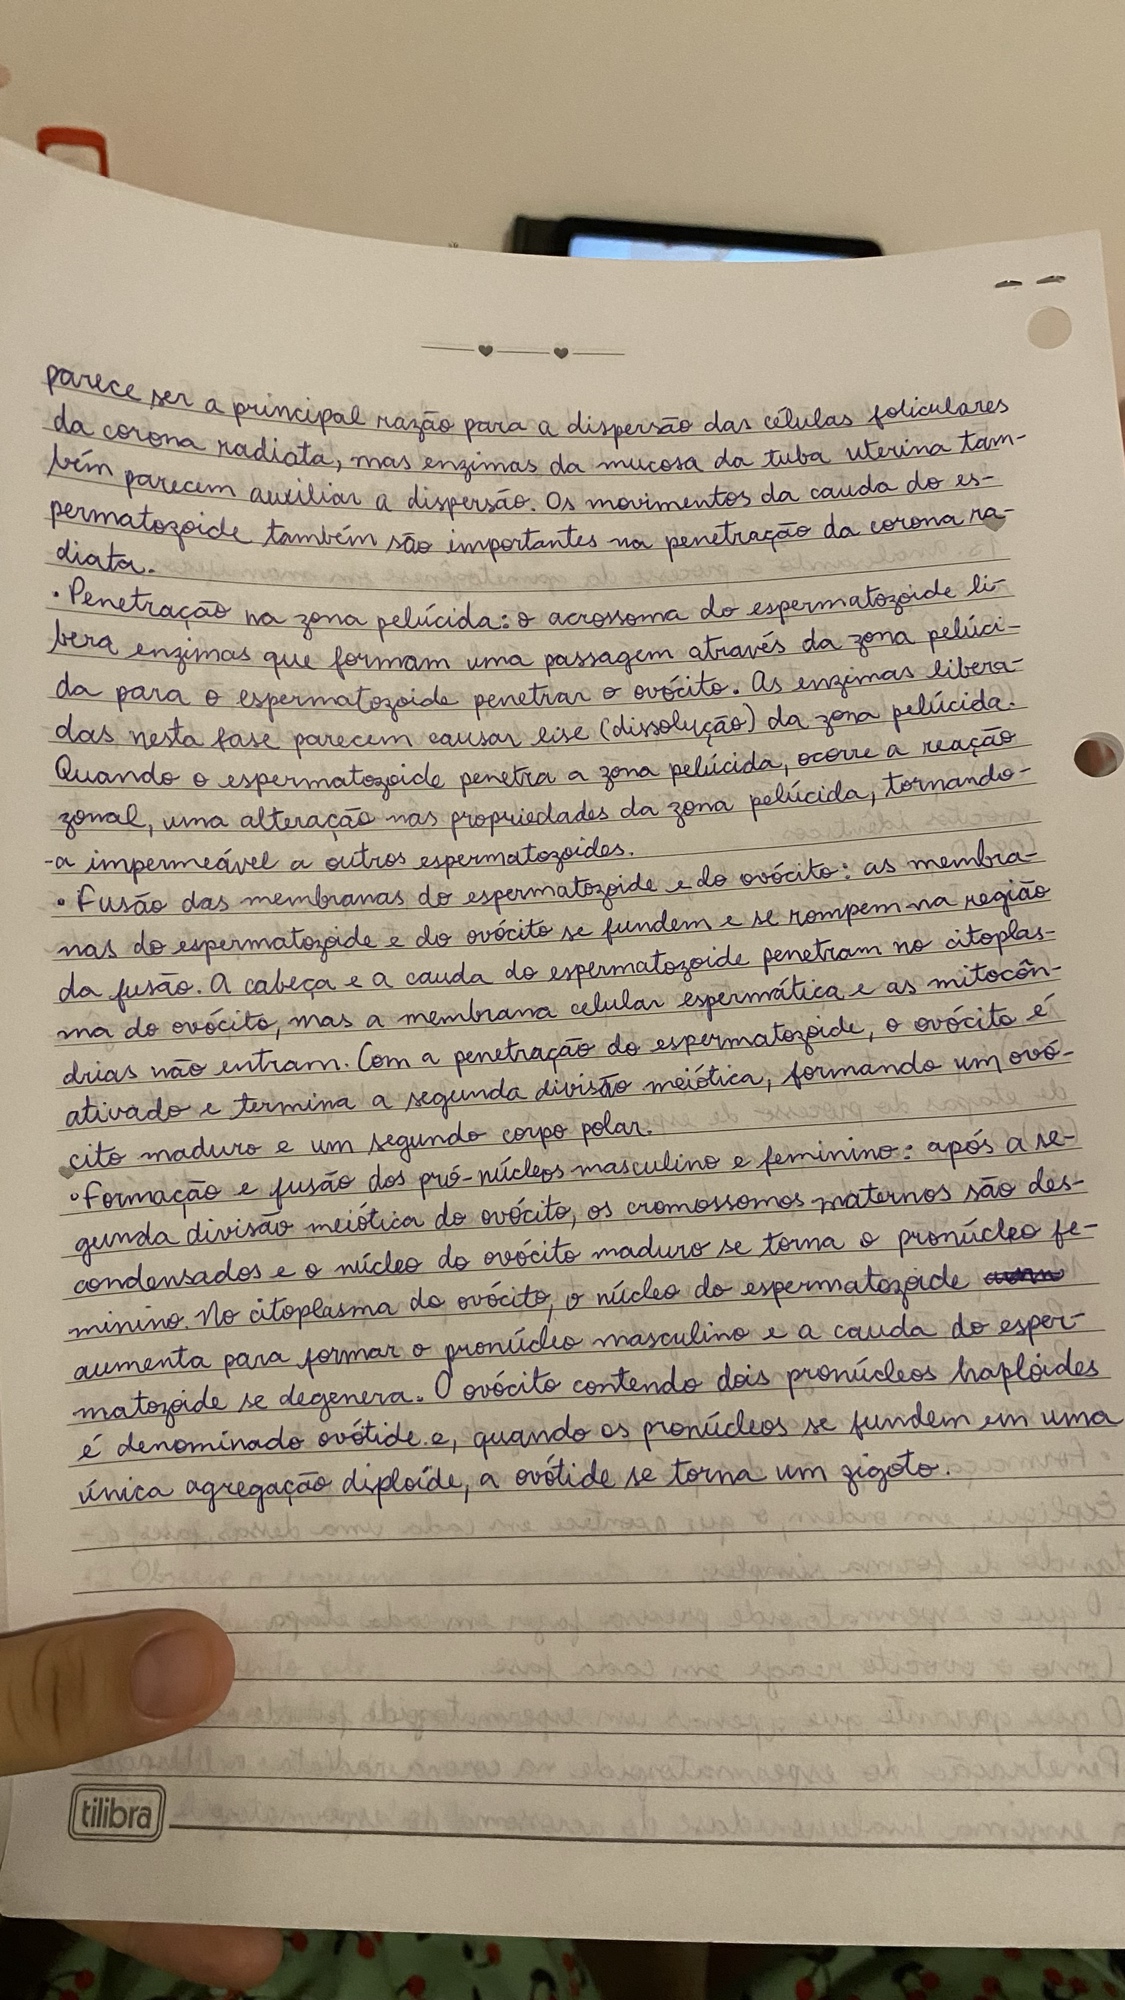 parece ser a principal razão para a dispersão das células foliculares
da corona radiata, mas enzimas da mucosa da tuba uterina tam-
bém parecem auxiliar a dispersão. Os movimentos da cauda do es-
permatozoide também são importantes na penetração da corona ra-
diata.
• Penetração na zona pelúcida: o acrossoma do espermatozoide li-
bera enzimas que formam uma passagem através da zona pelúci-
da para o espermatozoide penetrar o ovócito. As enzimas libera-
das nesta fase parecem causar lise (dissolução) da zona pelúcida.
Quando o espermatozoide penetra a zona pelúcida, ocorre a reação
zonal, uma alteração nas propriedades da zona pelúcida, tornando-
-a impermeável a outros espermatozoides.
• Fusão das membranas do espermatozoide e do ovócito: as membra-
nas do espermatozoide e do ovócito se fundem e se rompem na região
da fusão. A cabeça e a cauda do espermatozoide penetram no citoplas-
ma do ovócito, mas a membrana celular espermática e as mitocôn-
drias não entram. Com a penetração do espermatozoide, o ovócito é
ativado e termina a segunda divisão meiótica, formando um ovó-
cito maduro e um segundo corpo polar.
• Formação e fusão dos pró-núcleos masculino e feminino: após a se-
gunda divisão meiótica do ovócito, os cromossomos maternos são des-
condensados e o núcleo do ovócito maduro se torna o pronúcleo fe-
minino. No citoplasma do ovócito, o núcleo do espermatozoide
aumenta para formar o pronúcleo masculino e a cauda do esper-
matozoide se degenera. O ovócito contendo dois pronúcleos haplóides
é denominado ovótide e, quando os pronúcleos se fundem em uma
única agregação diploíde, a ovótide se torna um zigoto.
tilibra